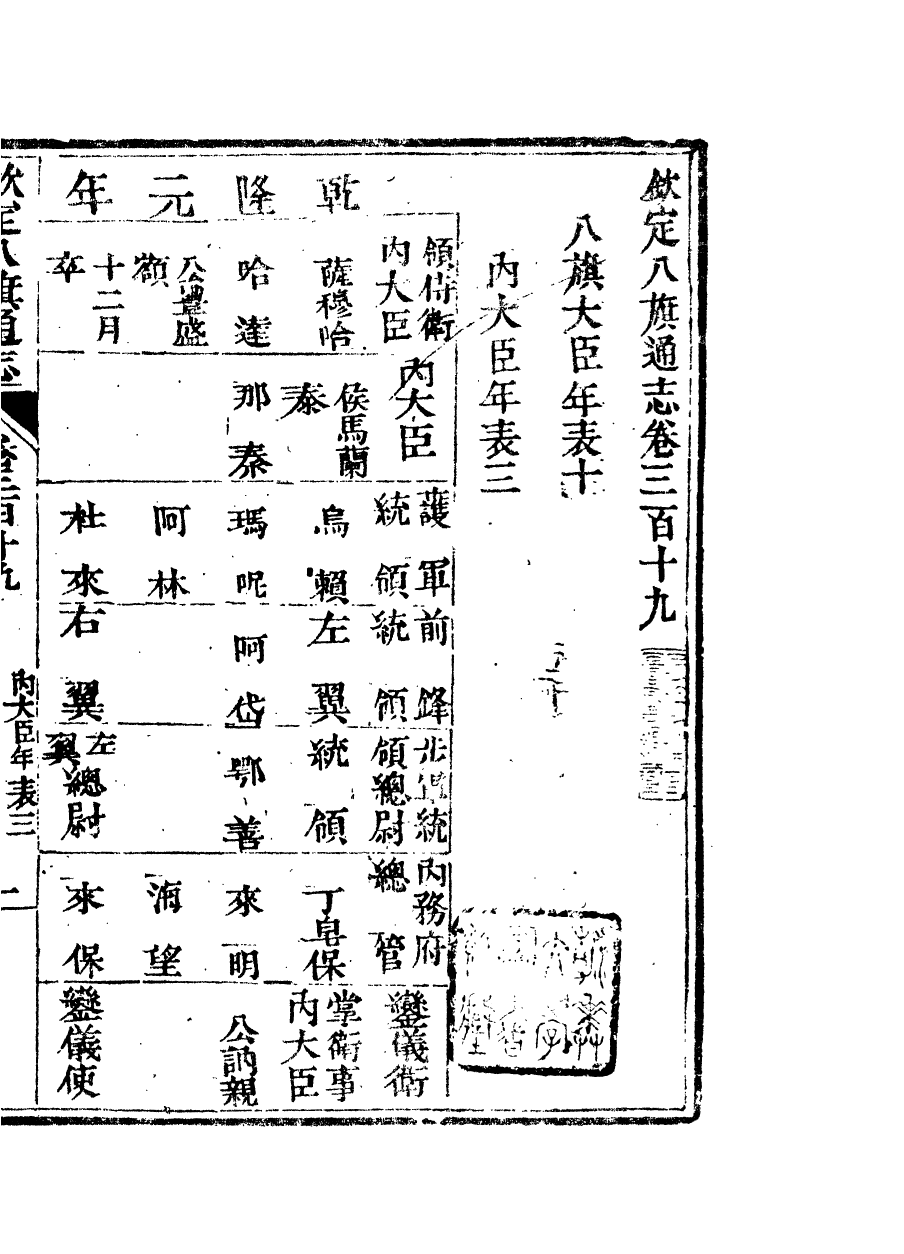 欽定八旗通志卷三百十九
八旗大臣年表十
內大臣年表三
乾隆元年
領侍衛內大臣
薩穆哈
哈達
公豐盛額
十二月卒
內大臣
侯馬蘭泰
那泰
護軍統領
烏賴
瑪呢
阿林
杜來
前鋒統領
左翼
阿岱
右翼
步軍統領總尉
統領
鄂善
左翼總尉
內務府總管
丁皂保
來明
海望
來保
鑾儀衛
掌衛事內大臣
公訥親
鑾儀使
欽定八旗通志
卷三百十九
內大臣年表三
一